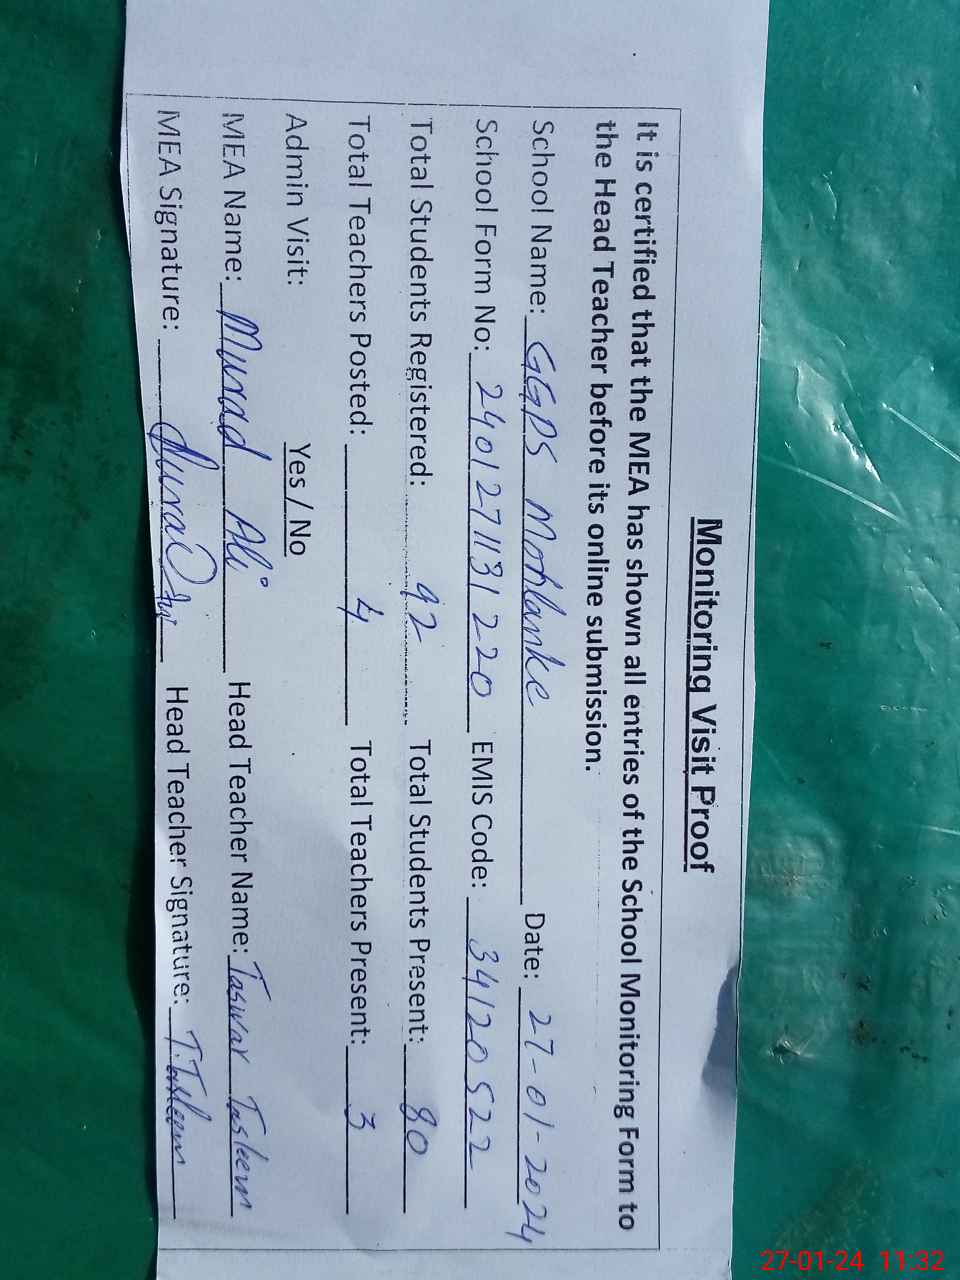 Monitoring Visit Proof
It is certified that the MEA has shown all entries of the School Monitoring Form to
the Head Teacher before its online submission.
School Name: GGPS Mohlanke Date: 27-01-2024
School Form No: 2401271131220 EMIS Code: 34120522
Total Students Registered: 92 Total Students Present: 80
Total Teachers Posted: 4 Total Teachers Present: 3
Admin Visit: Yes / No
MEA Name: Murad Ali Head Teacher Name: Taswar Tasleem
MEA Signature: Head Teacher Signature: T.Tasleem
27-01-24 11:32